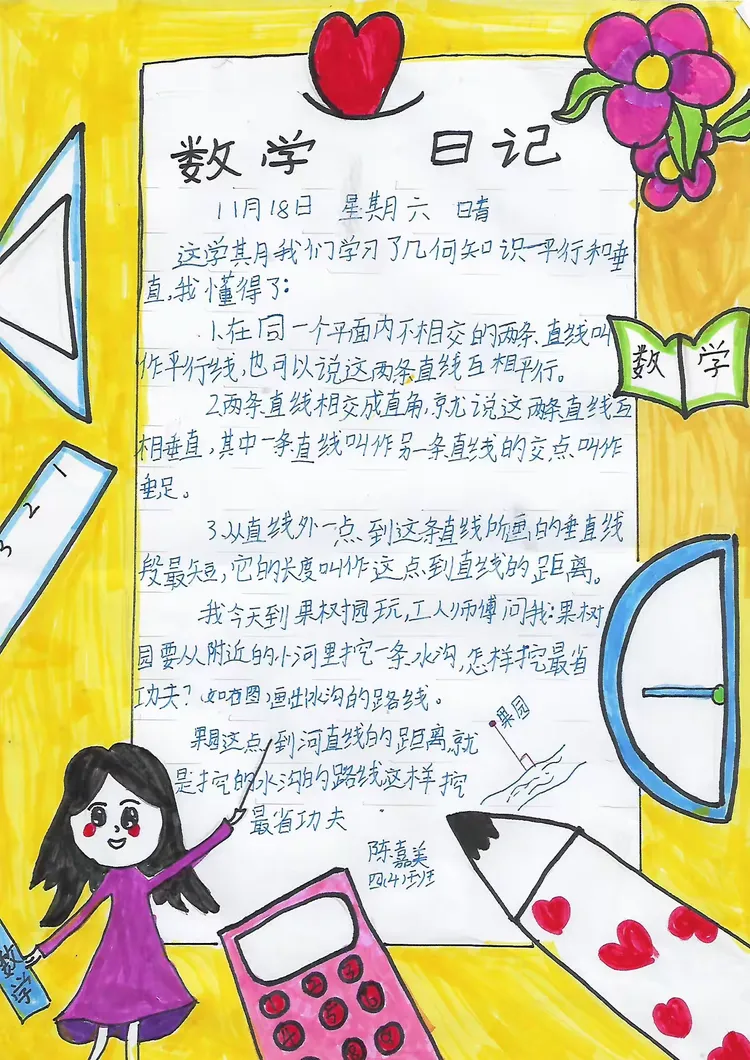 数学 日记
11月18日 星期六 晴
这学其月我们学习了几何知识—平行和垂
直,我懂得了:
1.在同一个平面内不相交的两条直线叫
作平行线,也可以说这两条直线互相平行。
2.两条直线相交成直角,就说这两条直线互
相垂直,其中一条直线叫作另一条直线的交点叫作
垂足。
3.从直线外一点到这条直线所画的垂直线
段最短,它的长度叫作这点到直线的距离。
我今天到果树园玩,工人师傅问我:果树
园要从附近的小河里挖一条水沟,怎样挖最省
功夫?如右图画出水沟的路线。
果园
果园这点到河直线的距离就
是挖的水沟的路线这样挖
最省功夫
陈嘉美
四(4)班
数学
1
2
3
数学